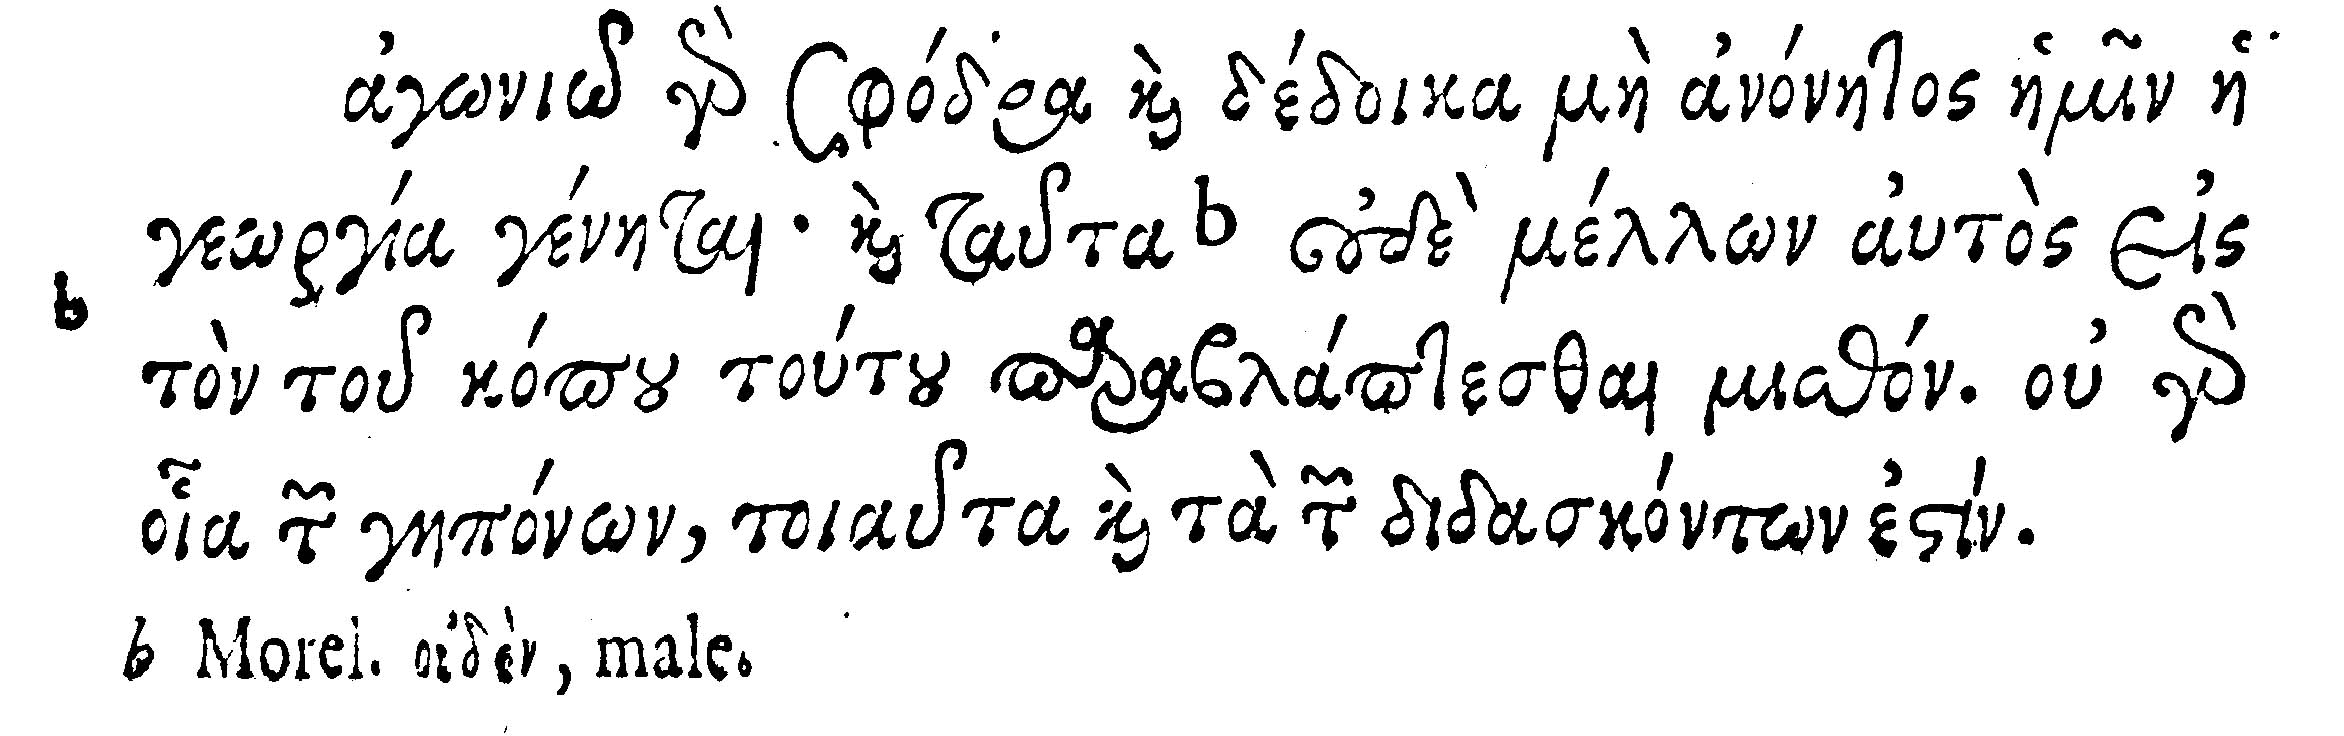 ἀγωνιῶ γὰρ σφόδρα καὶ δέδοικα μὴ ἀνόνητος ἡμῖν ἡ
γεωργία γένηται· καὶ ταῦτα b οὐδὲ μέλλων αὐτὸς εἰς
b τὸν τοῦ κόπου τούτου παραβλάπτεσθαι μισθόν. οὐ γὰρ
οἷα τῶν γηπόνων, τοιαῦτα καὶ τὰ τῶν διδασκόντων ἐστίν.
b Morel. οὐδὲν, male.